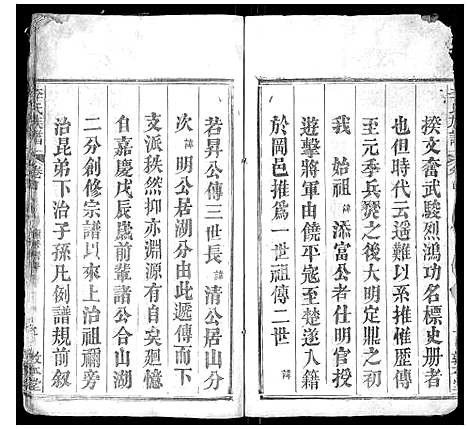 揆文奮武駿烈鴻功名標史册者
也但年代云遥難以系推惟歷傳
至元季兵燹之後大明定鼎之初
我 始祖諱添富公者仕明官授
遊擊將軍由饒平寇至楚遂入籍
於岡邑推爲一世祖傳二世諱
若昇公傳三世長諱清公居山分
次諱明公居湖分由此遞傳而下
支派秩然抑亦淵源有自矣廻憶
自嘉慶戊辰歲前輩諸公合山湖
二分創修宗譜以來上治祖禰旁
治昆弟下治子孫凡例譜規前叙
李氏族譜
敦本堂